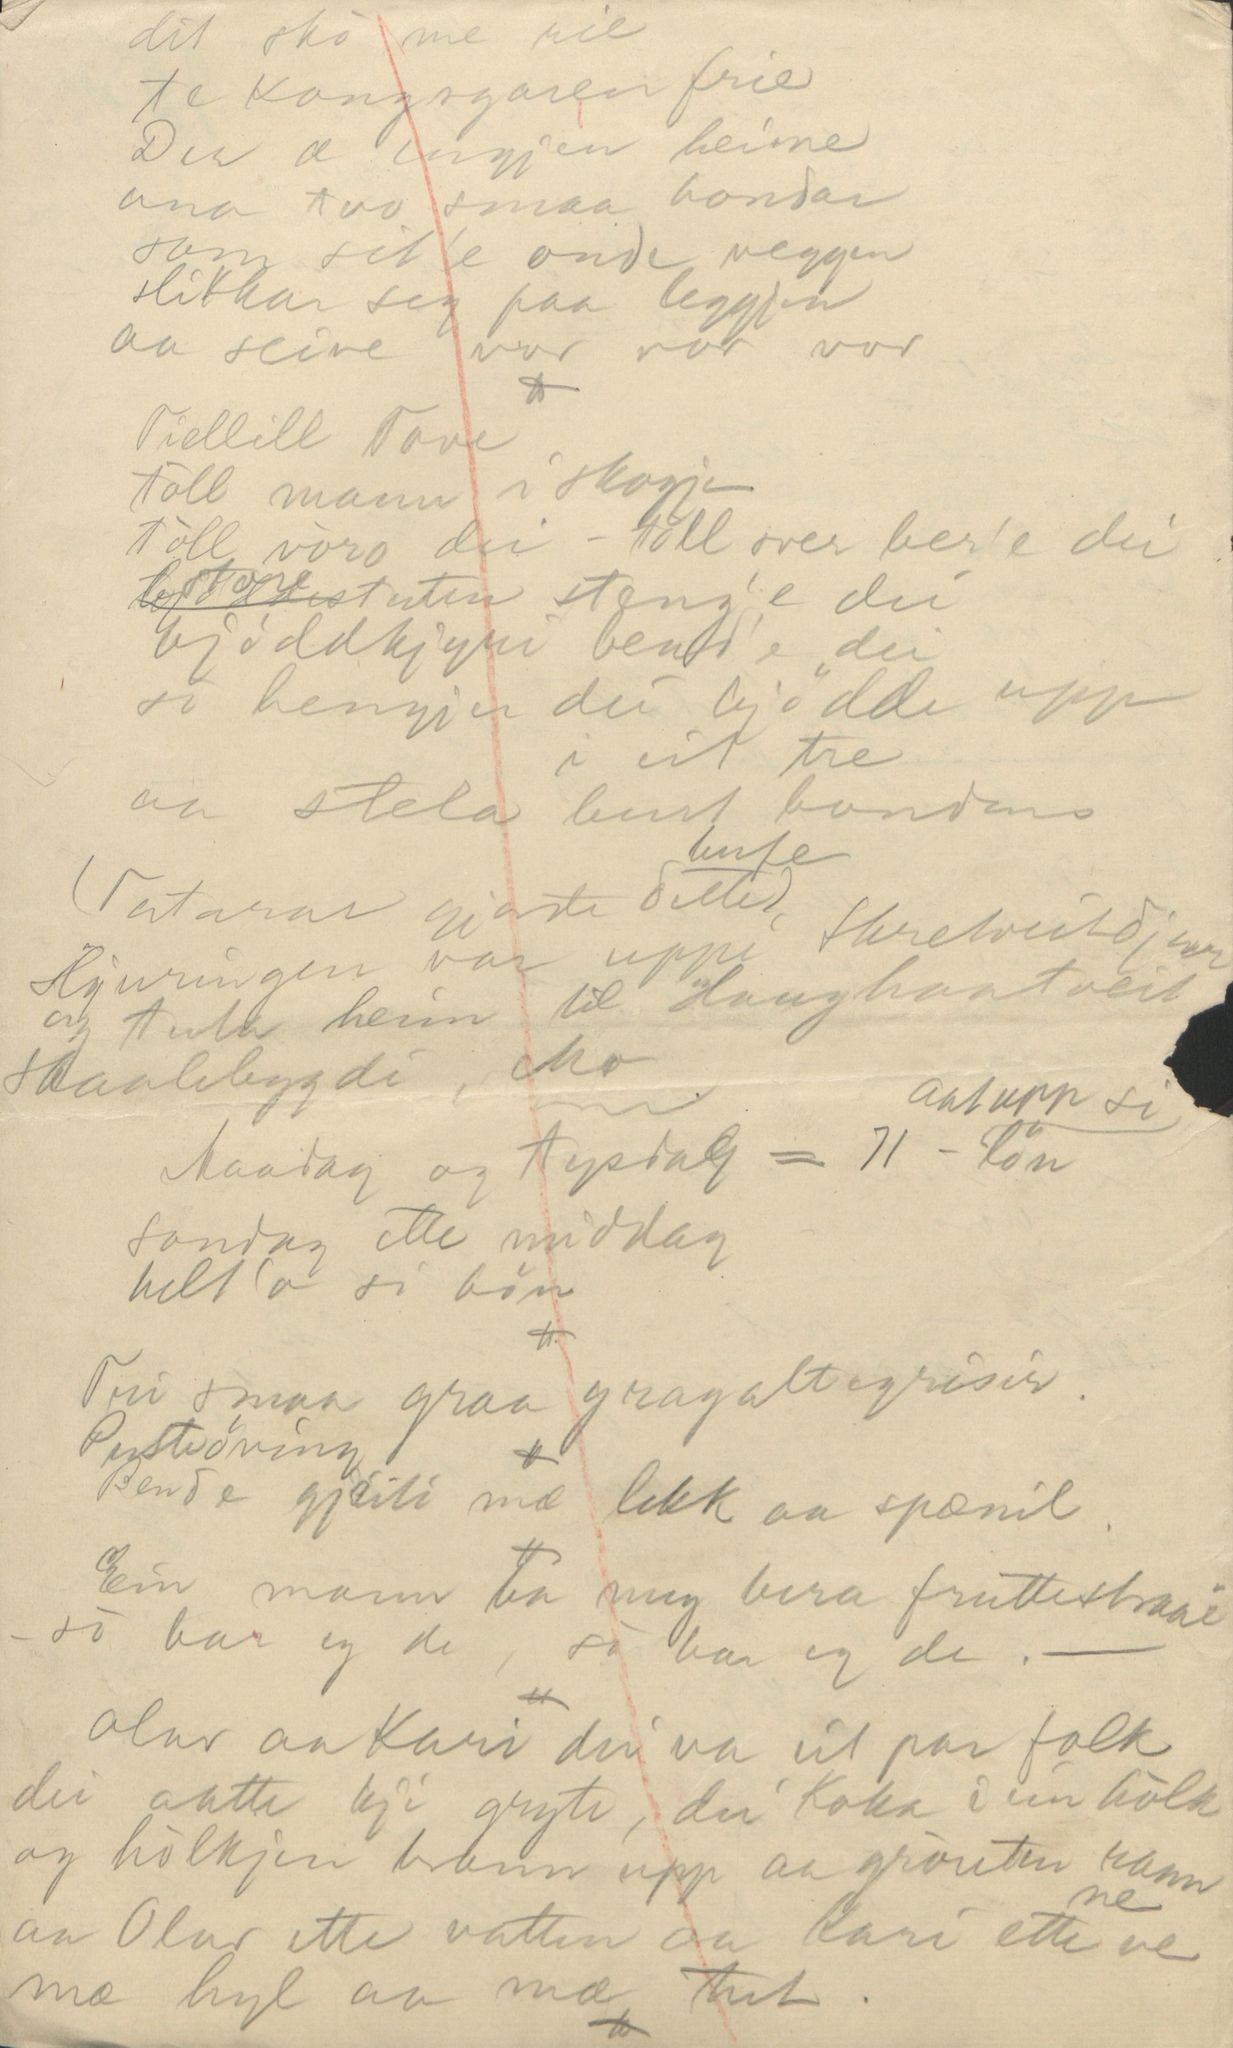 dit skò me rie
te Kongsgaren frie
Der æ ingjen heime
ana tvo smaa hondar
som sit'e onde veggen
slikkar seg paa leggjen
aa seie vov vov vov
Tiellill Tove
tòll mann i skogje
tòll vòro dei - tòll sver ber'e dei
store stuten steng'e dei
bjòddkjyri bend'e dei
sò hengjer dei bjödde upp
i eit tre
aa stela burt bondens
bufe
(Tatarar gjorde dette,
Hjuringen var uppi Skretveitdjuv
og tuta heim til Haughaatveit
Skaalebygdi, Mo
aat upp si
Maadag og tysdag = 71 - lön
sondag ette middag
helt'o si bön
Tri smaa graa gragaltegrisir.
Pusteöving
Bende gjeiti mæ lekk aa spænil.
Ein mann ba meg bera fruttestraae
- sò bar eg de, sò bar eg de. —
Olav aa Kari dei va eit par folk
dei aatte kji gryte, dei koka i ein hòlk
og hòlkjen brann upp aa gròuten rann
ne
aa Olav ette vatten aa Kari ette ve
mæ hyl aa mæ tut.